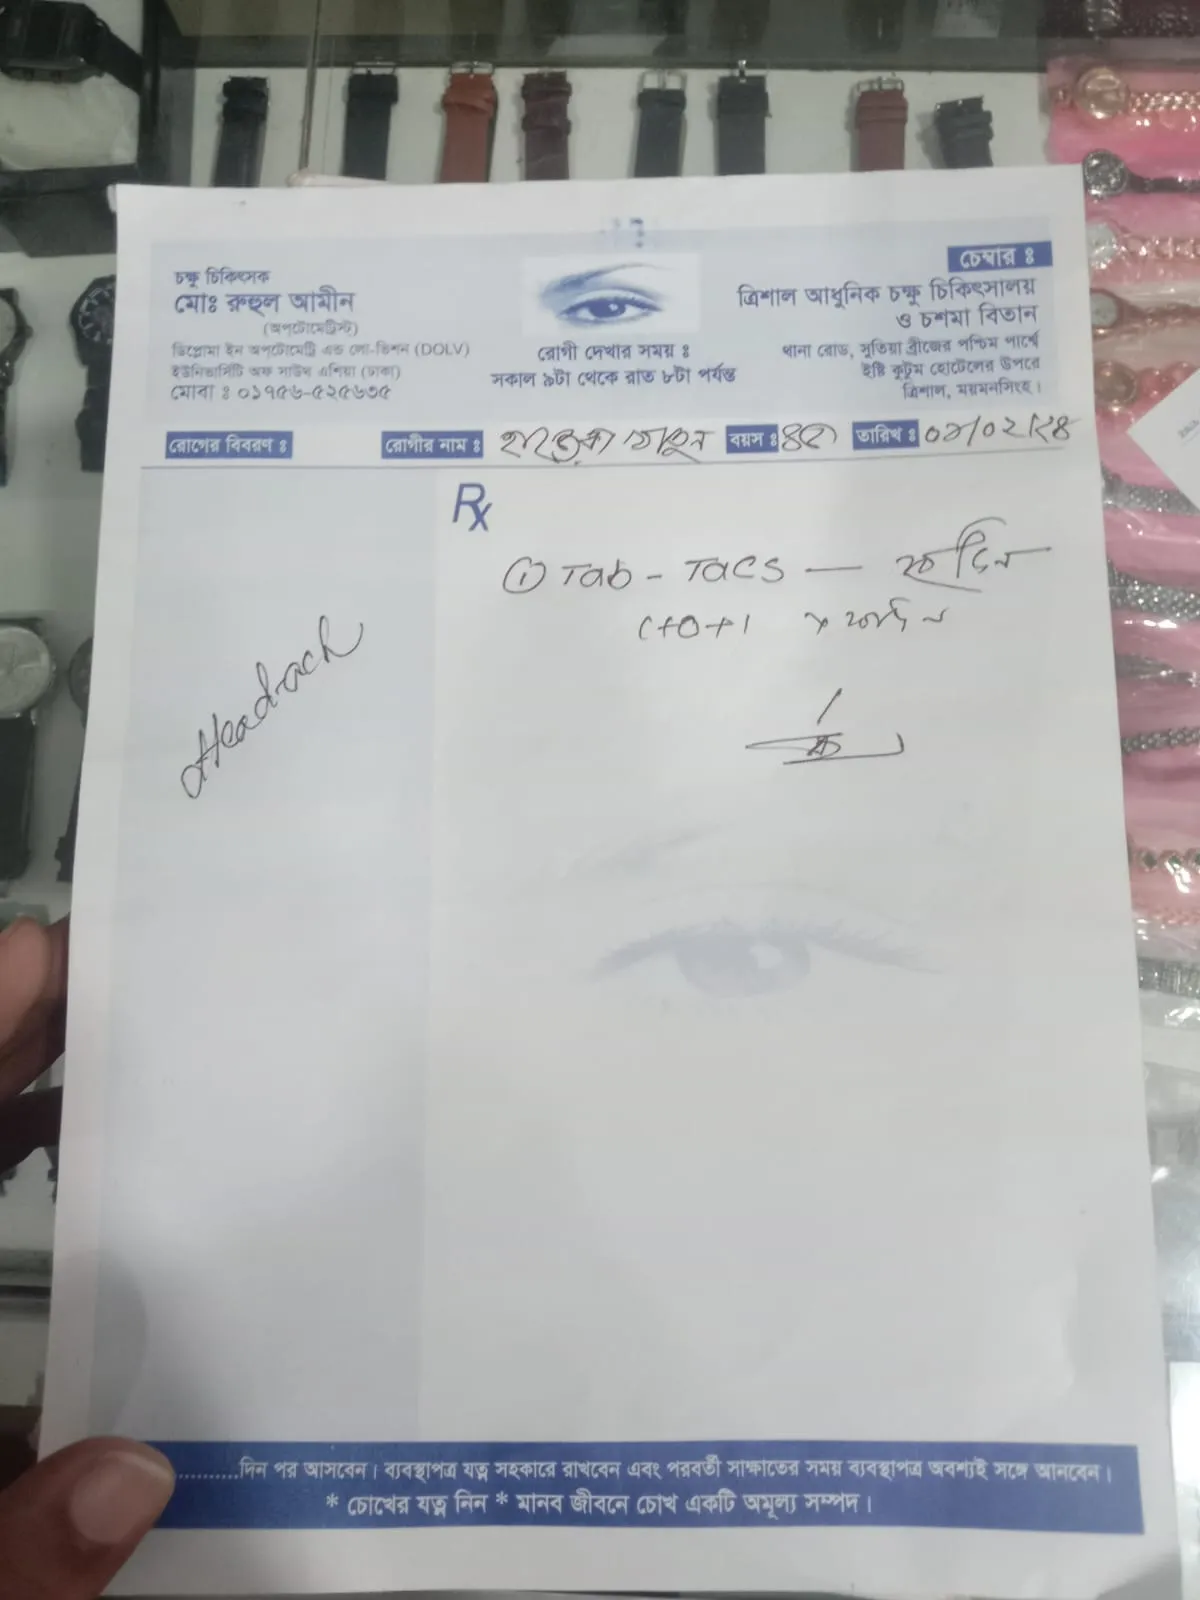 চক্ষু চিকিৎসক
মোঃ রুহুল আমীন
(অপটোমেট্রিস্ট)
ডিপ্লোমা ইন অপটোমেট্রি এন্ড লো-ভিশন (DOLV)
ইউনিভার্সিটি অফ সাউথ এশিয়া (ঢাকা)
মোবা ঃ ০১৭৫৬-৫২৫৬৩৫
রোগী দেখার সময় ঃ
সকাল ৯টা থেকে রাত ৮টা পর্যন্ত
চেম্বার ঃ
ত্রিশাল আধুনিক চক্ষু চিকিৎসালয়
ও চশমা বিতান
থানা রোড, সুতিয়া ব্রীজের পশ্চিম পার্শ্বে
ইষ্টি কুটুম হোটেলের উপরে
ত্রিশাল, ময়মনসিংহ।
রোগের বিবরণ ঃ রোগীর নাম ঃ বয়স ঃ তারিখ ঃ
Rx
① Tab - —
1+0+1
Headach
..............দিন পর আসবেন। ব্যবস্থাপত্র যত্ন সহকারে রাখবেন এবং পরবর্তী সাক্ষাতের সময় ব্যবস্থাপত্র অবশ্যই সঙ্গে আনবেন।
* চোখের যত্ন নিন * মানব জীবনে চোখ একটি অমূল্য সম্পদ।